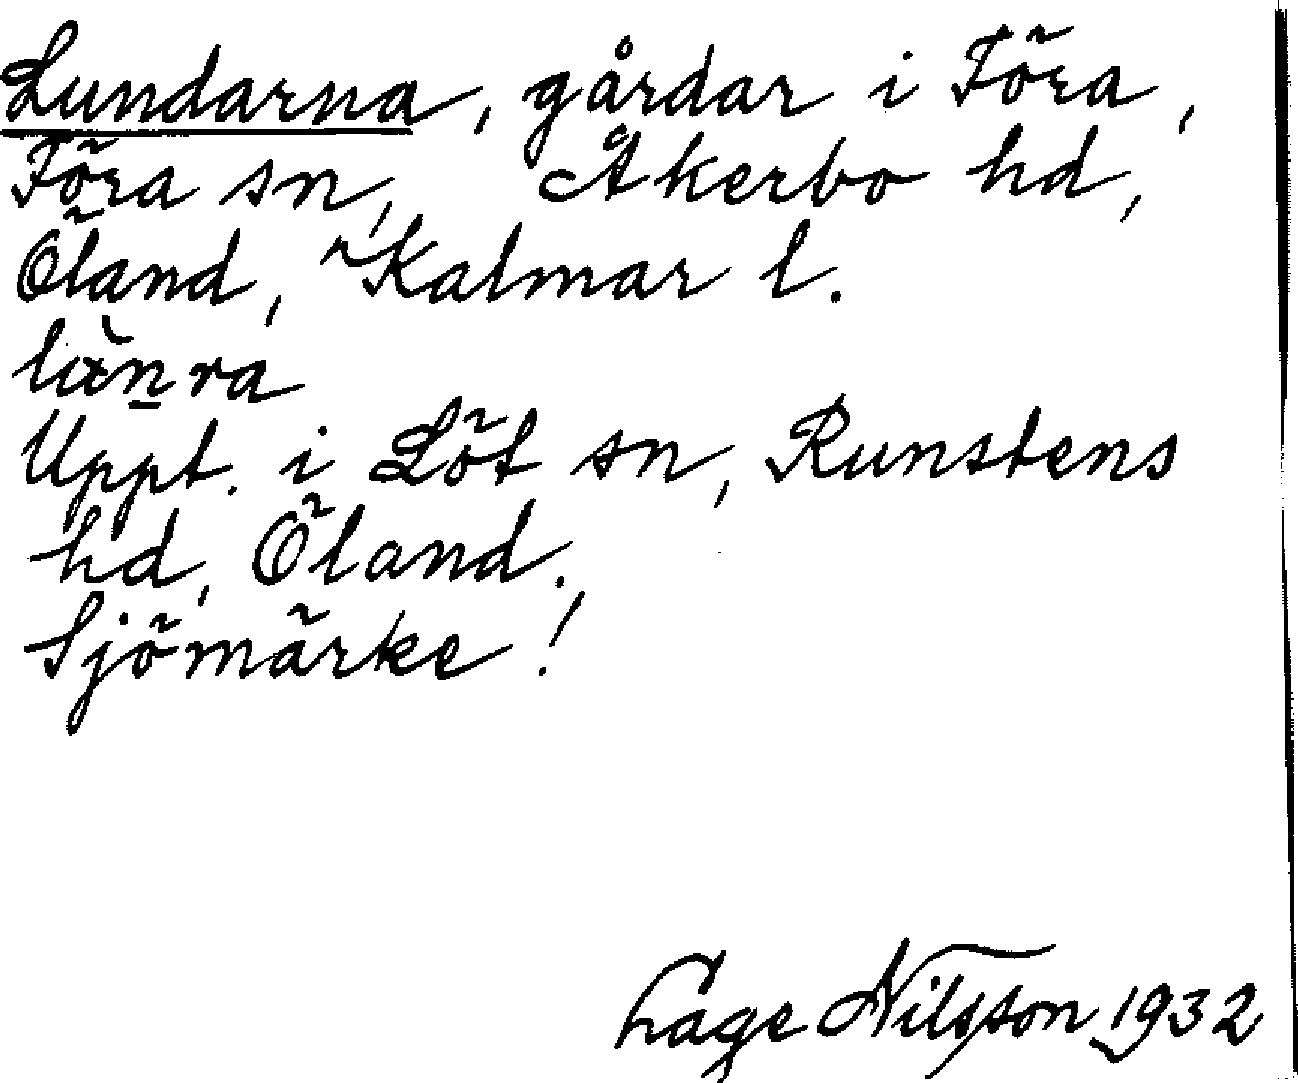 Lundarna, gårdar i Föra,
Föra sn, Åkerbo hd,
Öland, Kalmar l.
Uppt. i Löt sn, Runstens
hd, Öland.
Sjömärke!
Lage Nilsson 1932